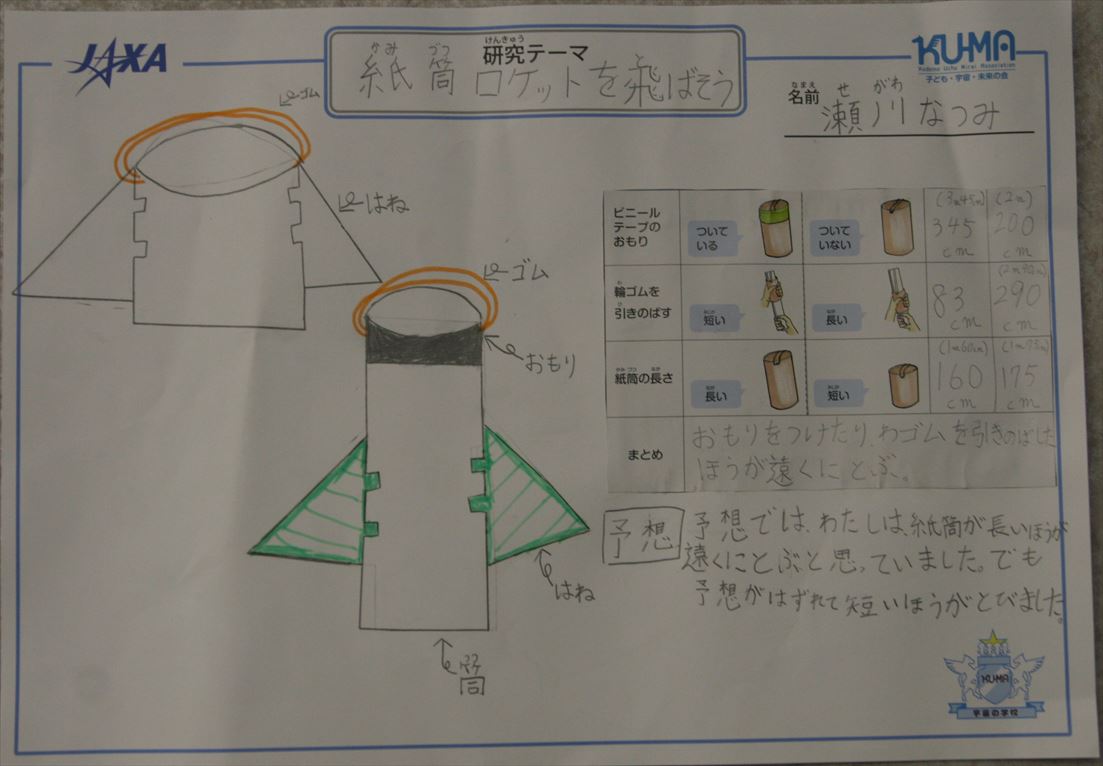 JAXA
けんきゅう
研究テーマ
かみ づつ と
紙筒ロケットを飛ばそう
KU-MA
Kodomo Uchu Mirai Association
子ども・宇宙・未来の会
なまえ せ がわ
名前 瀬川なつみ
ゴム
はね
ゴム
おもり
はね
筒
ビニール
テープの
おもり
ついて
いる
ついて
いない
(3m45cm)
345
cm
(2m)
200
cm
わ
輪ゴムを
ひ
引きのばす
みじか
短い
なが
長い
83
cm
(2m90cm)
290
cm
かみ づつ なが
紙筒の長さ
なが
長い
みじか
短い
(1m60cm)
160
cm
(1m75cm)
175
cm
まとめ
おもりをつけたり、わゴムを引きのばした
ほうが遠くにとぶ。
予想
予想では、わたしは、紙筒が長いほうが
遠くにとぶと思っていました。でも
予想がはずれて短いほうがとびました。
KU-MA
宇宙の学校